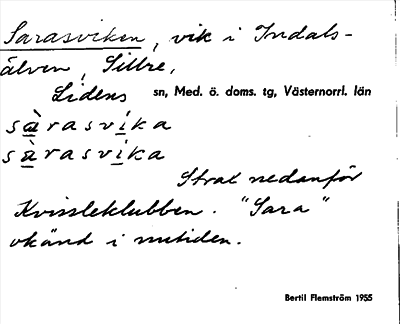 Sarasviken, vik i Indals-
älven, Sillre,
Lidens sn, Med. ö. doms. tg, Västernorrl. län
sàrasvika
sàrasvika
Strax nedanför
Kvissleklubben. "Sara"
okänd i nutiden.
Bertil Flemström 1955